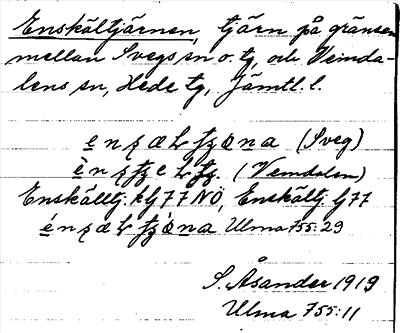 Enskältjärnen, tjärn på gränsen
mellan Svegs sn o. tg, och Vemda-
lens sn, Hede tg, Jämtl. l.
(Sveg)
(Vemdalen)
Enskälltj. kG77NO, Enskältj. G77
Ulma 755:29
S. Åsander 1919
Ulma 755:11